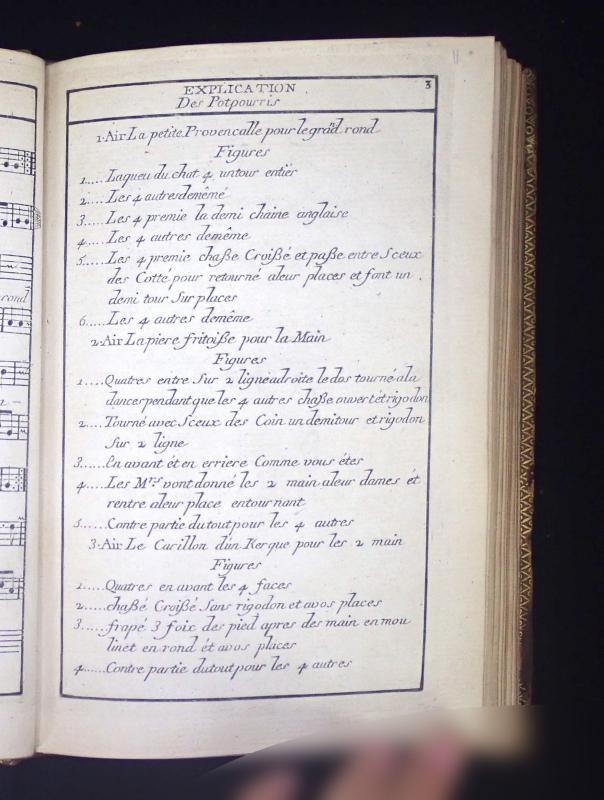 EXPLICATION
3
Des Potpourris
1. Air La petite Provencalle pour le grãd rond
Figures
1..... La queu du chat 4 un tour entiér
2..... Les 4 autres demêmé
3..... Les 4 premie la demi chaine anglaise
4..... Les 4 autres demême
5..... Les 4 premie chaße Croißé et paße entre Sceux
des Cotté pour retourné a leur places et font un
demi tour Sur places
6..... Les 4 autres demême
2. Air La piere fritoiße pour la Main
Figures
1..... Quatres entre Sur 2 ligne adroite le dos tourné a la
dances pendant que les 4 autres chaße ouvert ét rigodon
2..... Tourné avec Sceux des Coin un demi tour et rigodon
Sur 2 ligne
3..... En avant ét en erriere Comme vous étes
4..... Les Mrs vont donné les 2 main a leur dames ét
rentre a leur place en tournant
5..... Contre partie du tout pour les 4 autres
3. Air Le Carillon d'un Kerque pour les 2 main
Figures
1..... Quatres en avant les 4 faces
2..... chaßé Croißé Sans rigodon et avos places
3..... frapé 3 foix des pied apres des main en mou
linet en rond ét avos places
4..... Contre partie du tout pour les 4 autres
rond